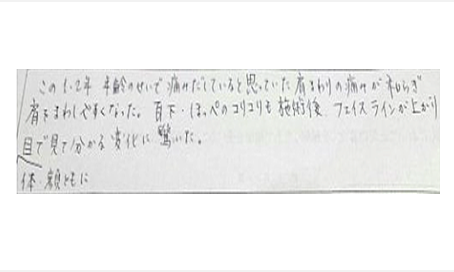 この1.2年 年齢のせいで痛みだしていると思っていた肩まわりの痛みが和らぎ
肩もまわしやすくなった。目下・ほっぺのコリコリも施術後 フェイスラインが上がり
目で見て分かる変化に驚いた。
体・顔ともに